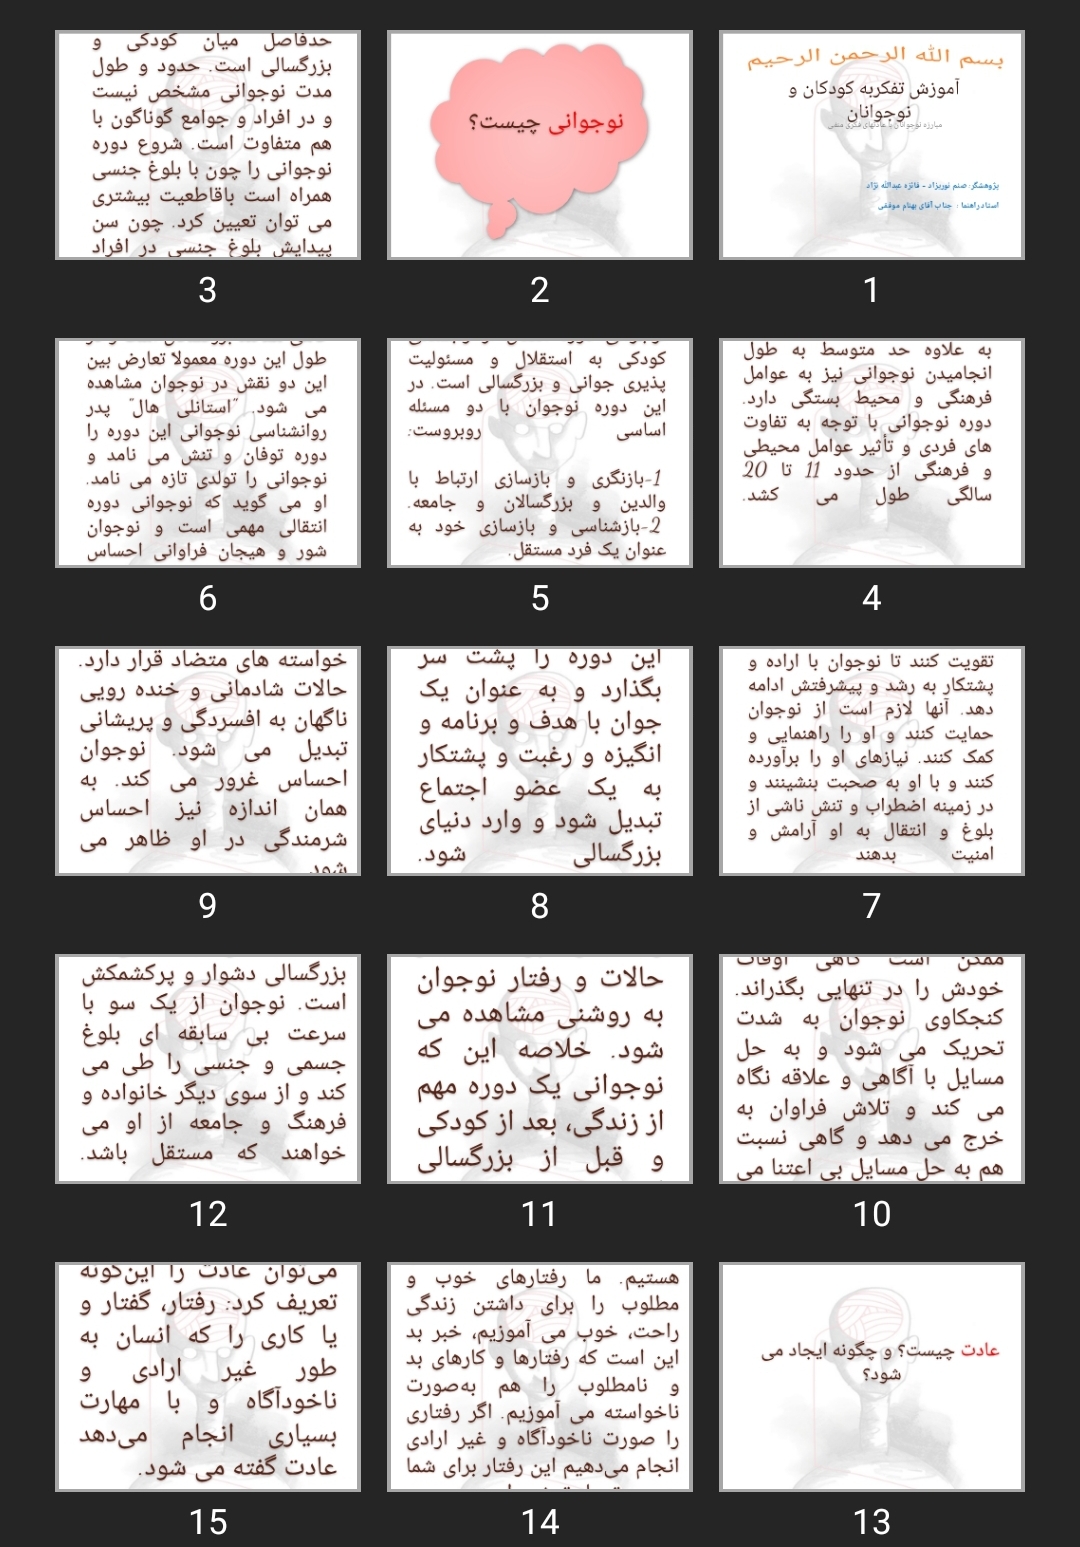 بسم الله الرحمن الرحیم
آموزش تفکربه کودکان و
نوجوانان
مبارزه نوجوانان با عادتهای فکری منفی
پژوهشگر: صنم نوریزاد - فائزه عبدالله نژاد
استاد راهنما : جناب آقای بهنام موفقی
1
نوجوانی چیست؟
2
حدفاصل میان کودکی و
بزرگسالی است. حدود و طول
مدت نوجوانی مشخص نیست
و در افراد و جوامع گوناگون با
هم متفاوت است. شروع دوره
نوجوانی را چون با بلوغ جنسی
همراه است باقاطعیت بیشتری
می توان تعیین کرد. چون سن
پیدایش بلوغ جنسی در افراد
3
به علاوه حد متوسط به طول
انجامیدن نوجوانی نیز به عوامل
فرهنگی و محیط بستگی دارد.
دوره نوجوانی با توجه به تفاوت
های فردی و تأثیر عوامل محیطی
و فرهنگی از حدود 11 تا 20
سالگی طول می کشد.
4
کودکی به استقلال و مسئولیت
پذیری جوانی و بزرگسالی است. در
این دوره نوجوان با دو مسئله
اساسی روبروست:
1-بازنگری و بازسازی ارتباط با
والدین و بزرگسالان و جامعه.
2-بازشناسی و بازسازی خود به
عنوان یک فرد مستقل.
5
طول این دوره معمولاً تعارض بین
این دو نقش در نوجوان مشاهده
می شود. "استانلی هال" پدر
روانشناسی نوجوانی این دوره را
دوره توفان و تنش می نامد و
نوجوانی را تولدی تازه می نامد.
او می گوید که نوجوانی دوره
انتقالی مهمی است و نوجوان
شور و هیجان فراوانی احساس
6
تقویت کنند تا نوجوان با اراده و
پشتکار به رشد و پیشرفتش ادامه
دهد. آنها لازم است از نوجوان
حمایت کنند و او را راهنمایی و
کمک کنند. نیازهای او را برآورده
کنند و با او به صحبت بنشینند و
در زمینه اضطراب و تنش ناشی از
بلوغ و انتقال به او آرامش و
امنیت بدهند
7
این دوره را پشت سر
بگذارد و به عنوان یک
جوان با هدف و برنامه و
انگیزه و رغبت و پشتکار
به یک عضو اجتماع
تبدیل شود و وارد دنیای
بزرگسالی شود.
8
خواسته های متضاد قرار دارد.
حالات شادمانی و خنده رویی
ناگهان به افسردگی و پریشانی
تبدیل می شود. نوجوان
احساس غرور می کند. به
همان اندازه نیز احساس
شرمندگی در او ظاهر می
شود.
9
ممکن است گاهی اوقات
خودش را در تنهایی بگذراند.
کنجکاوی نوجوان به شدت
تحریک می شود و به حل
مسایل با آگاهی و علاقه نگاه
می کند و تلاش فراوان به
خرج می دهد و گاهی نسبت
هم به حل مسایل بی اعتنا می
10
حالات و رفتار نوجوان
به روشنی مشاهده می
شود. خلاصه این که
نوجوانی یک دوره مهم
از زندگی، بعد از کودکی
و قبل از بزرگسالی
11
بزرگسالی دشوار و پرکشمکش
است. نوجوان از یک سو با
سرعت بی سابقه ای بلوغ
جسمی و جنسی را طی می
کند و از سوی دیگر خانواده و
فرهنگ و جامعه از او می
خواهند که مستقل باشد.
12
عادت چیست؟ و چگونه ایجاد می
شود؟
13
هستیم. ما رفتارهای خوب و
مطلوب را برای داشتن زندگی
راحت، خوب می آموزیم، خبر بد
این است که رفتارها و کارهای بد
و نامطلوب را هم به‌صورت
ناخواسته می آموزیم. اگر رفتاری
را صورت ناخودآگاه و غیر ارادی
انجام می‌دهیم این رفتار برای شما
14
می‌توان عادت را این‌گونه
تعریف کرد: رفتار، گفتار و
یا کاری را که انسان به
طور غیر ارادی و
ناخودآگاه و با مهارت
بسیاری انجام می‌دهد
عادت گفته می شود.
15